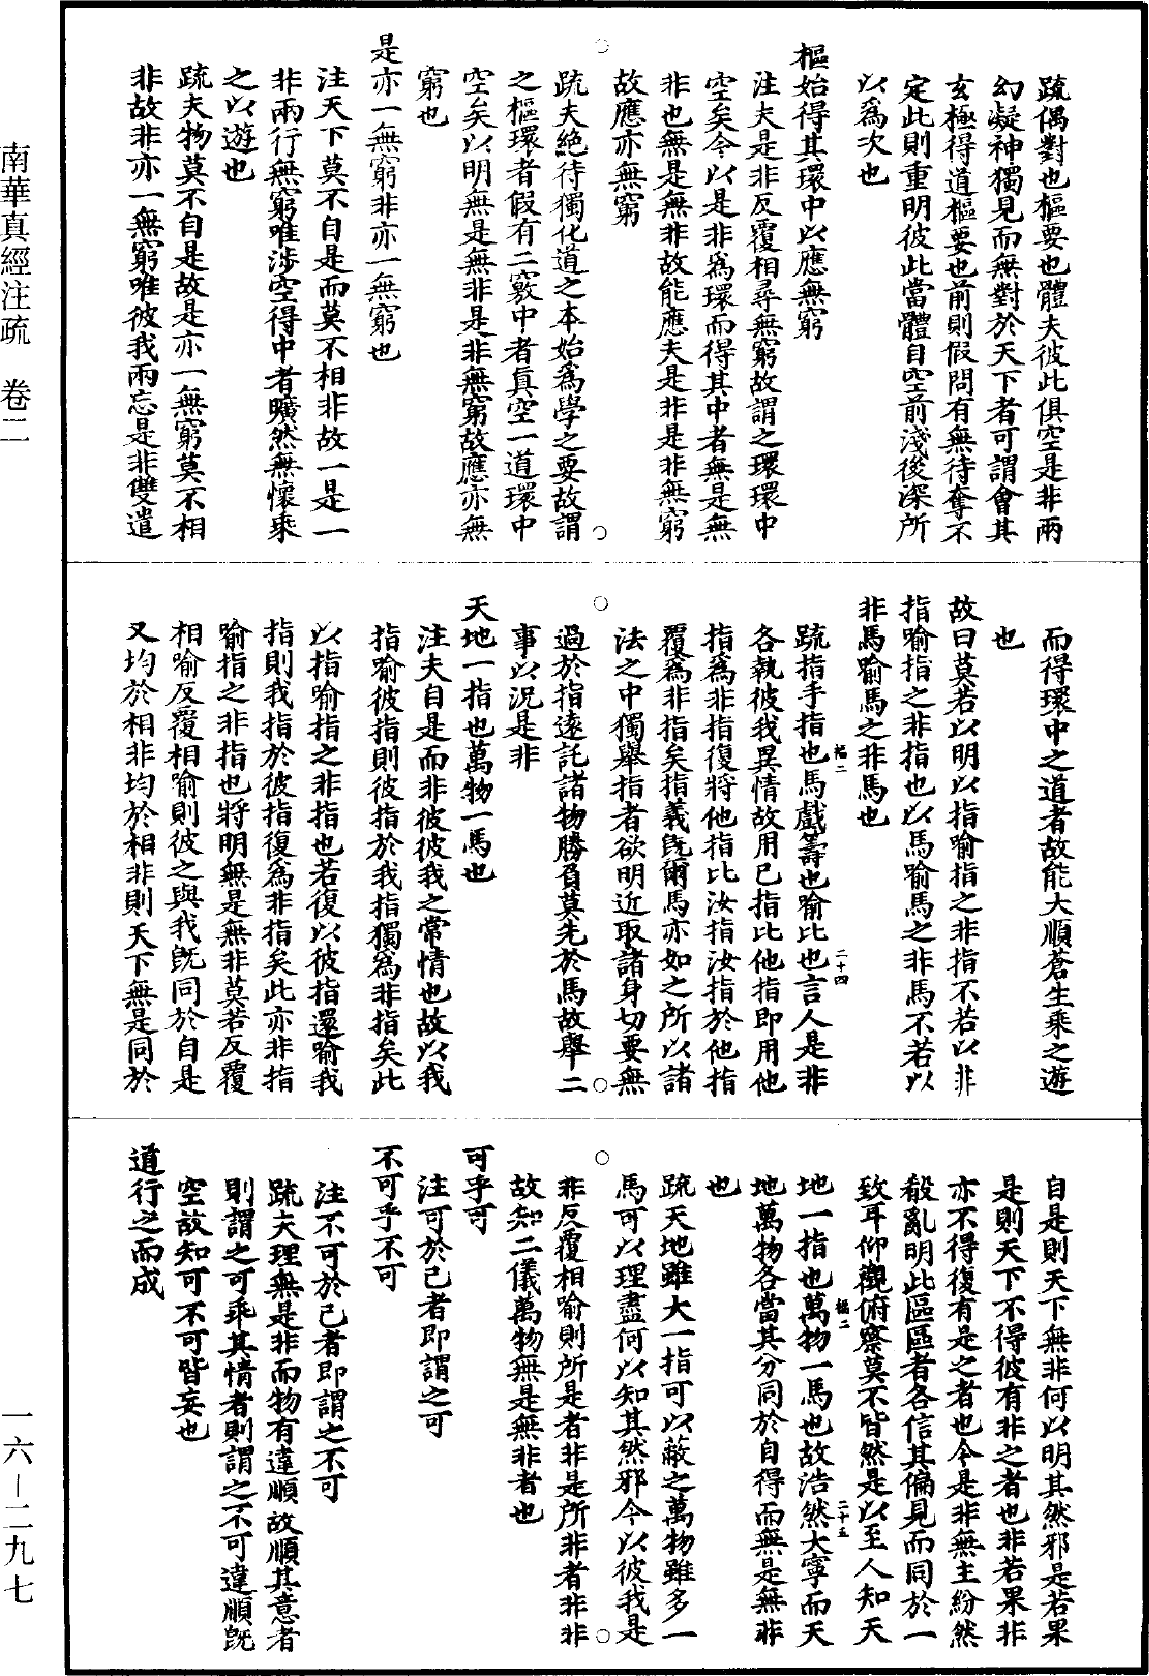 南華真經注疏　卷二
疏偶對也樞要也體夫彼此俱空是非兩
幻凝神獨見而無對於天下者可謂會其
玄極得道樞要也前則假問有無待奪不
定此則重明彼此當體自空前淺後深所
以爲次也
樞始得其環中以應無窮
注夫是非反覆相尋無窮故謂之環環中
空矣今以是非爲環而得其中者無是無
非也無是無非故能應夫是非是非無窮
故應亦無窮
疏夫絶待獨化道之本始爲學之要故謂
之樞環者假有二竅中者真空一道環中
空矣以明無是無非是非無窮故應亦無
窮也
是亦一無窮非亦一無窮也
注天下莫不自是而莫不相非故一是一
非兩行無窮唯涉空得中者曠然無懷乘
之以遊也
疏夫物莫不自是故是亦一無窮莫不相
非故非亦一無窮唯彼我兩忘是非雙遣
而得環中之道者故能大順蒼生乘之遊
也
故曰莫若以明以指喻指之非指不若以非
指喻指之非指也以馬喻馬之非馬不若以
非馬喻馬之非馬也
疏指手指也馬戲籌也喻比也言人是非
各執彼我異情故用己指比他指即用他
指爲非指復將他指比汝指汝指於他指
覆爲非指矣指義既爾馬亦如之所以諸
法之中獨舉指者欲明近取諸身切要無
過於指遠託諸物勝負莫先於馬故舉二
事以況是非
天地一指也萬物一馬也
注夫自是而非彼彼我之常情也故以我
指喻彼指則彼指於我指獨爲非指矣此
以指喻指之非指也若復以彼指還喻我
指則我指於彼指復爲非指矣此亦非指
喻指之非指也將明無是無非莫若反覆
相喻反覆相喻則彼之與我既同於自是
又均於相非均於相非則天下無是同於
自是則天下無非何以明其然邪是若果
是則天下不得彼有非之者也非若果非
亦不得復有是之者也今是非無主紛然
殽亂明此區區者各信其偏見而同於一
致耳仰觀俯察莫不皆然是以至人知天
地一指也萬物一馬也故浩然大寧而天
地萬物各當其分同於自得而無是無非
也
疏天地雖大一指可以蔽之萬物雖多一
馬可以理盡何以知其然邪今以彼我是
非反覆相喻則所是者非是所非者非非
故知二儀萬物無是無非者也
可乎可
注可於己者即謂之可
不可乎不可
注不可於己者即謂之不可
疏夫理無是非而物有違順故順其意者
則謂之可乖其情者則謂之不可違順既
空故知可不可皆妄也
道行之而成
二十四
二十五
一六—二九七